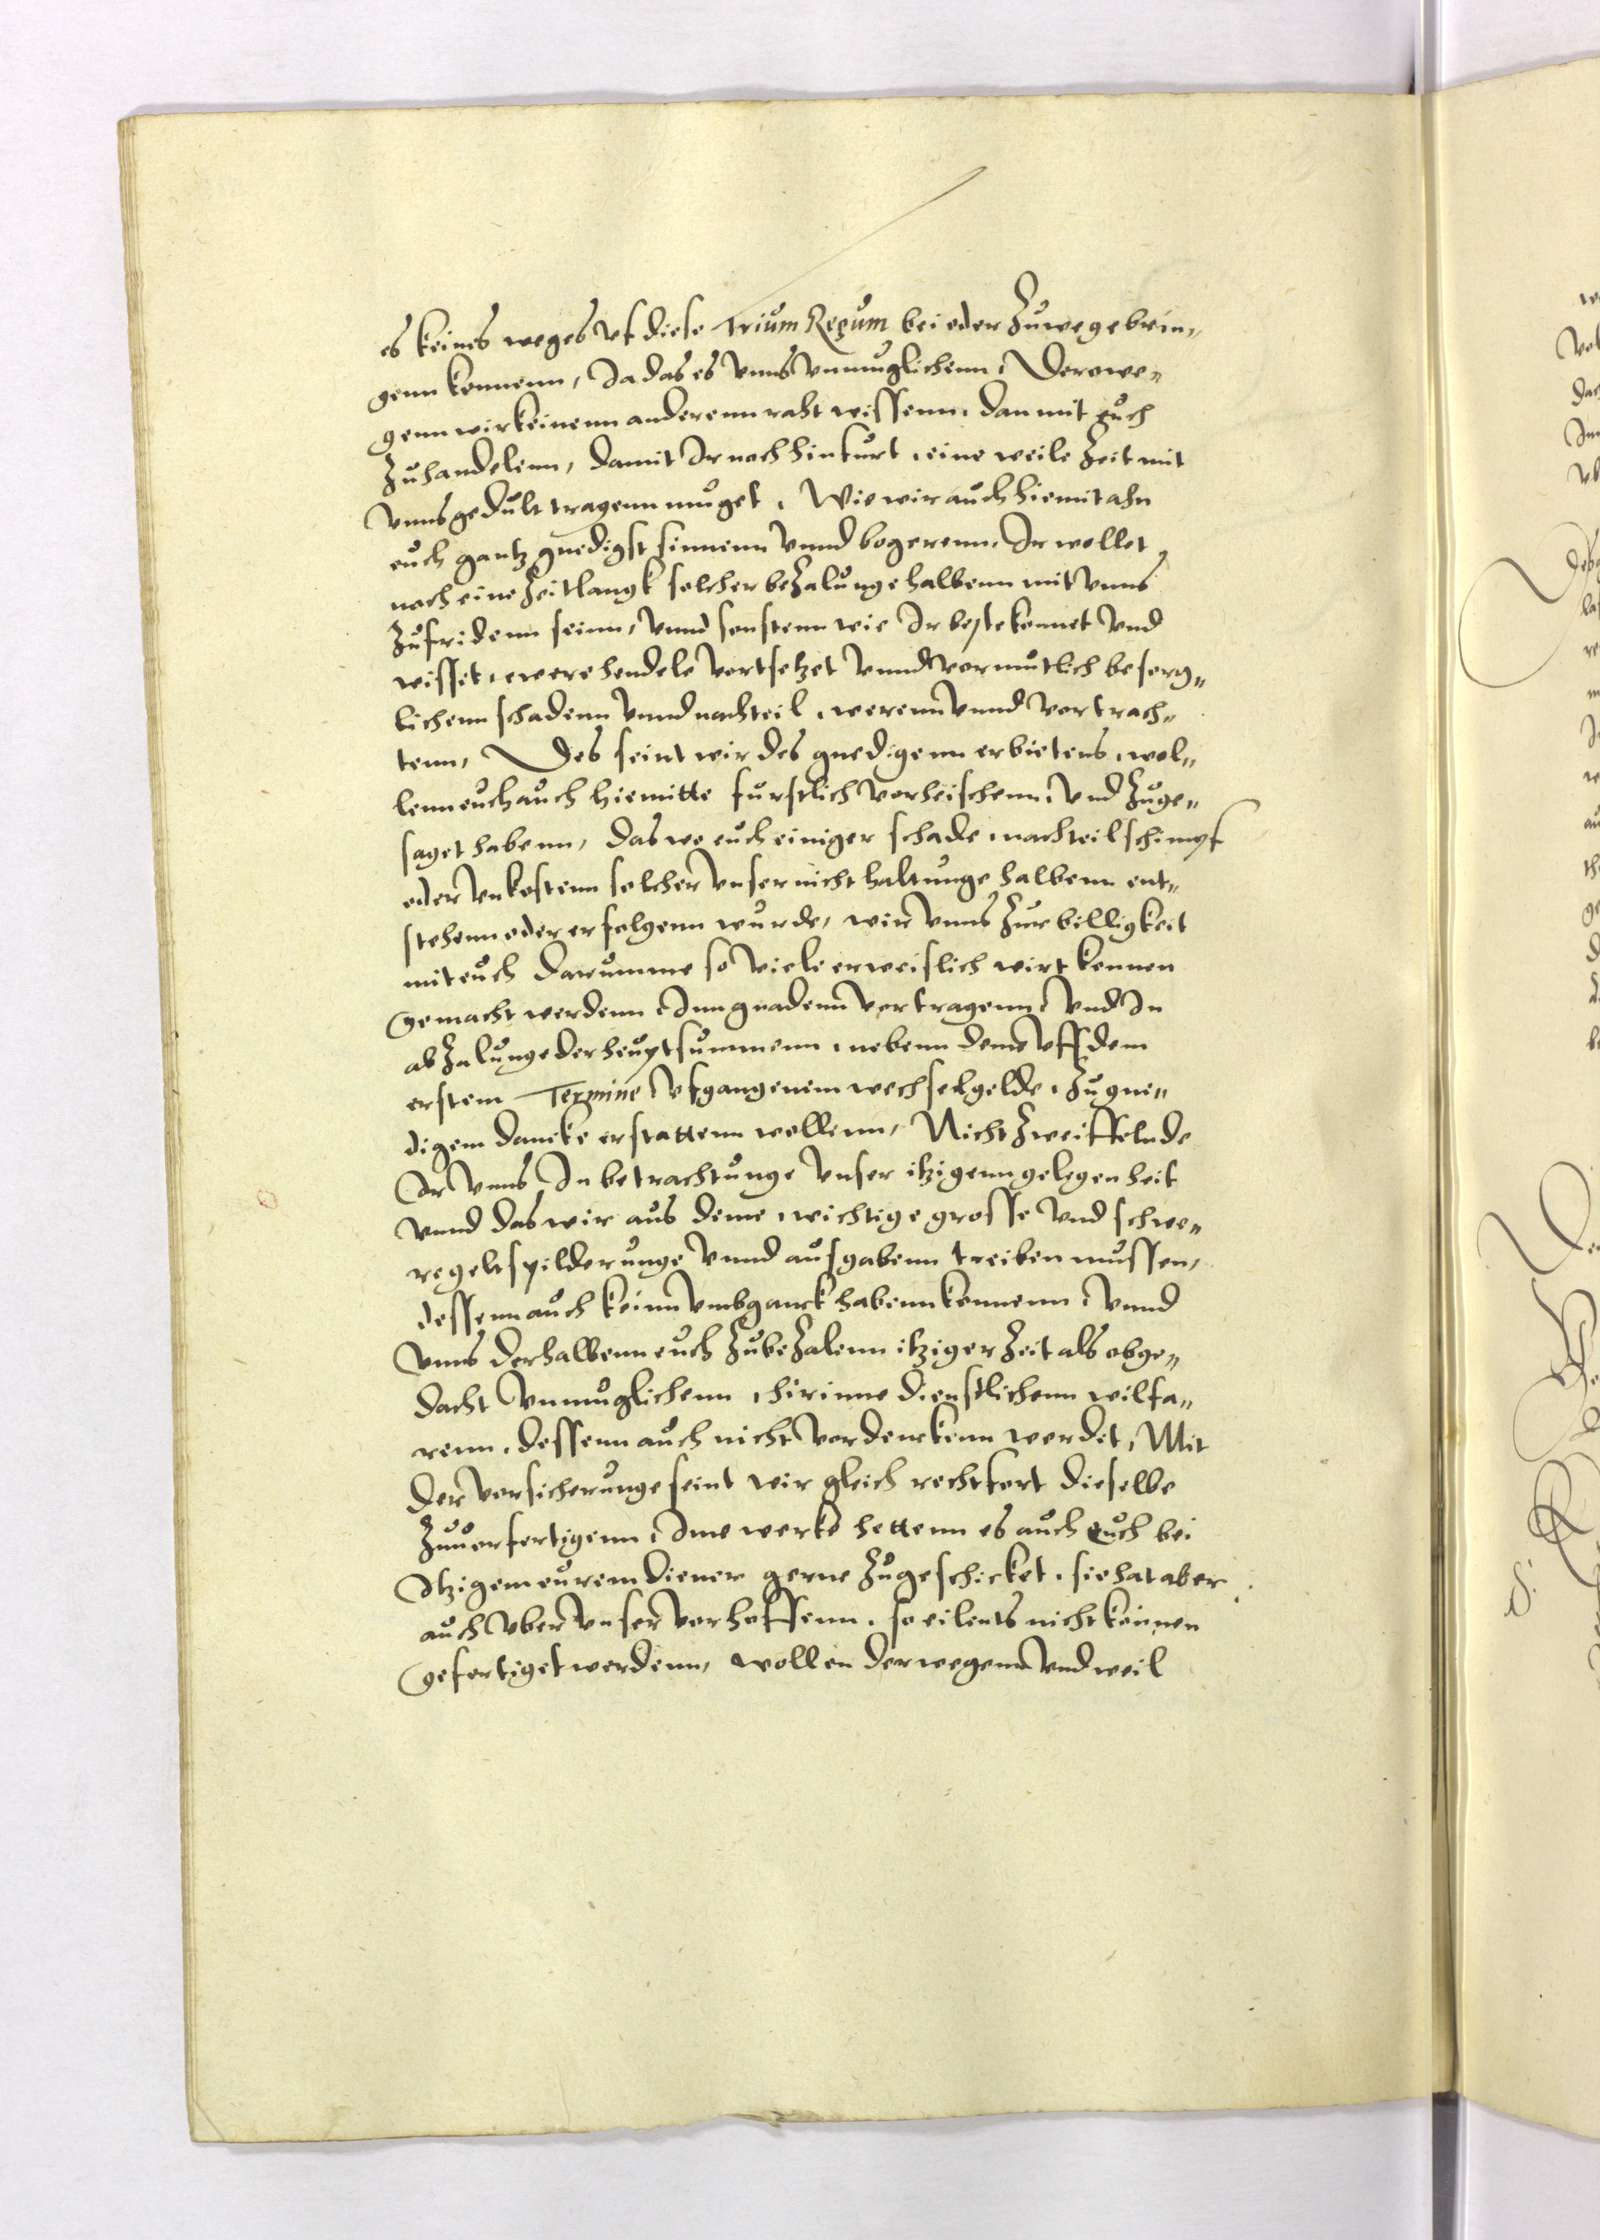 es keines weges vf diese Trium Regum bei oder zuwege brin„
genn konnenn, Ja das es vnns vnmuglichenn, Derowe„
genn wir keinenn anderenn raht wissenn, dan mit euch
zuhandelenn, damit Ir noch hinfurt, eine weile Zeit mit
vnns gedult tragenn muget, Wie wir auch hiemit ahn
euch gantz gnedigst sinnenn vnnd begerenn, Ir wollet
noch eine Zeitlangk solcher bezalunge halbenn mit vnns
zufridenn seinn, vnnd sonstenn wie Ir beste konnet vnd
wisset, ewere hendele vortsetzet vnnd vormutlich besorg„
lichenn schadenn vnnd nachteil, werenn vnnd vortrach„
tenn, Des seint wir des gnedigenn erbietens, wol„
lenn euch auch hiemitte furstlich vorheischenn, vnd zuge„
saget habenn, das wo euch einiger schade, nachteil schimpf
oder vnkostenn solcher vnser nicht haltunge halbenn ent„
stehenn oder erfolgenn wurde, wir vnns zur billigkeit
mit euch darumme so viele erweislich wirt konnen
gemacht werdenn, Inn gnadenn vortragenn, vnd In
abzalunge der heuptsummenn, nebenn deme vff dem
erstem Termine vfgangenem wechselgelde, zu gne„
digem dancke erstattenn wollenn, Nicht zweiffelnde
Ir vnns In betrachtunge vnser itzigenn gelegenheit
vnnd das wir aus deme, wichtige grosse vnd schwe„
re geltspilderunge vnnd ausgabenn treiben mussen,
dessenn auch keinn vmbganck habenn konnenn, vnnd
vnns derhalbenn euch zubezalenn itziger Zeit als obge„
dacht vnmuglichenn, hirinne dienstlichenn wilfa„
renn, dessenn auch nicht vordenckenn werdet, Mit
der vorsicherunge seint wir gleich rechtfort dieselbe
zuuorfertigenn, Ime wercke hettenn es auch euch bei
Itzigem eurem diener gerne zugeschicket, sie hat aber
auch vber vnser vorhoffenn, so eilents nicht konnen
gefertiget werdenn, wollen derwegenn vnd weil